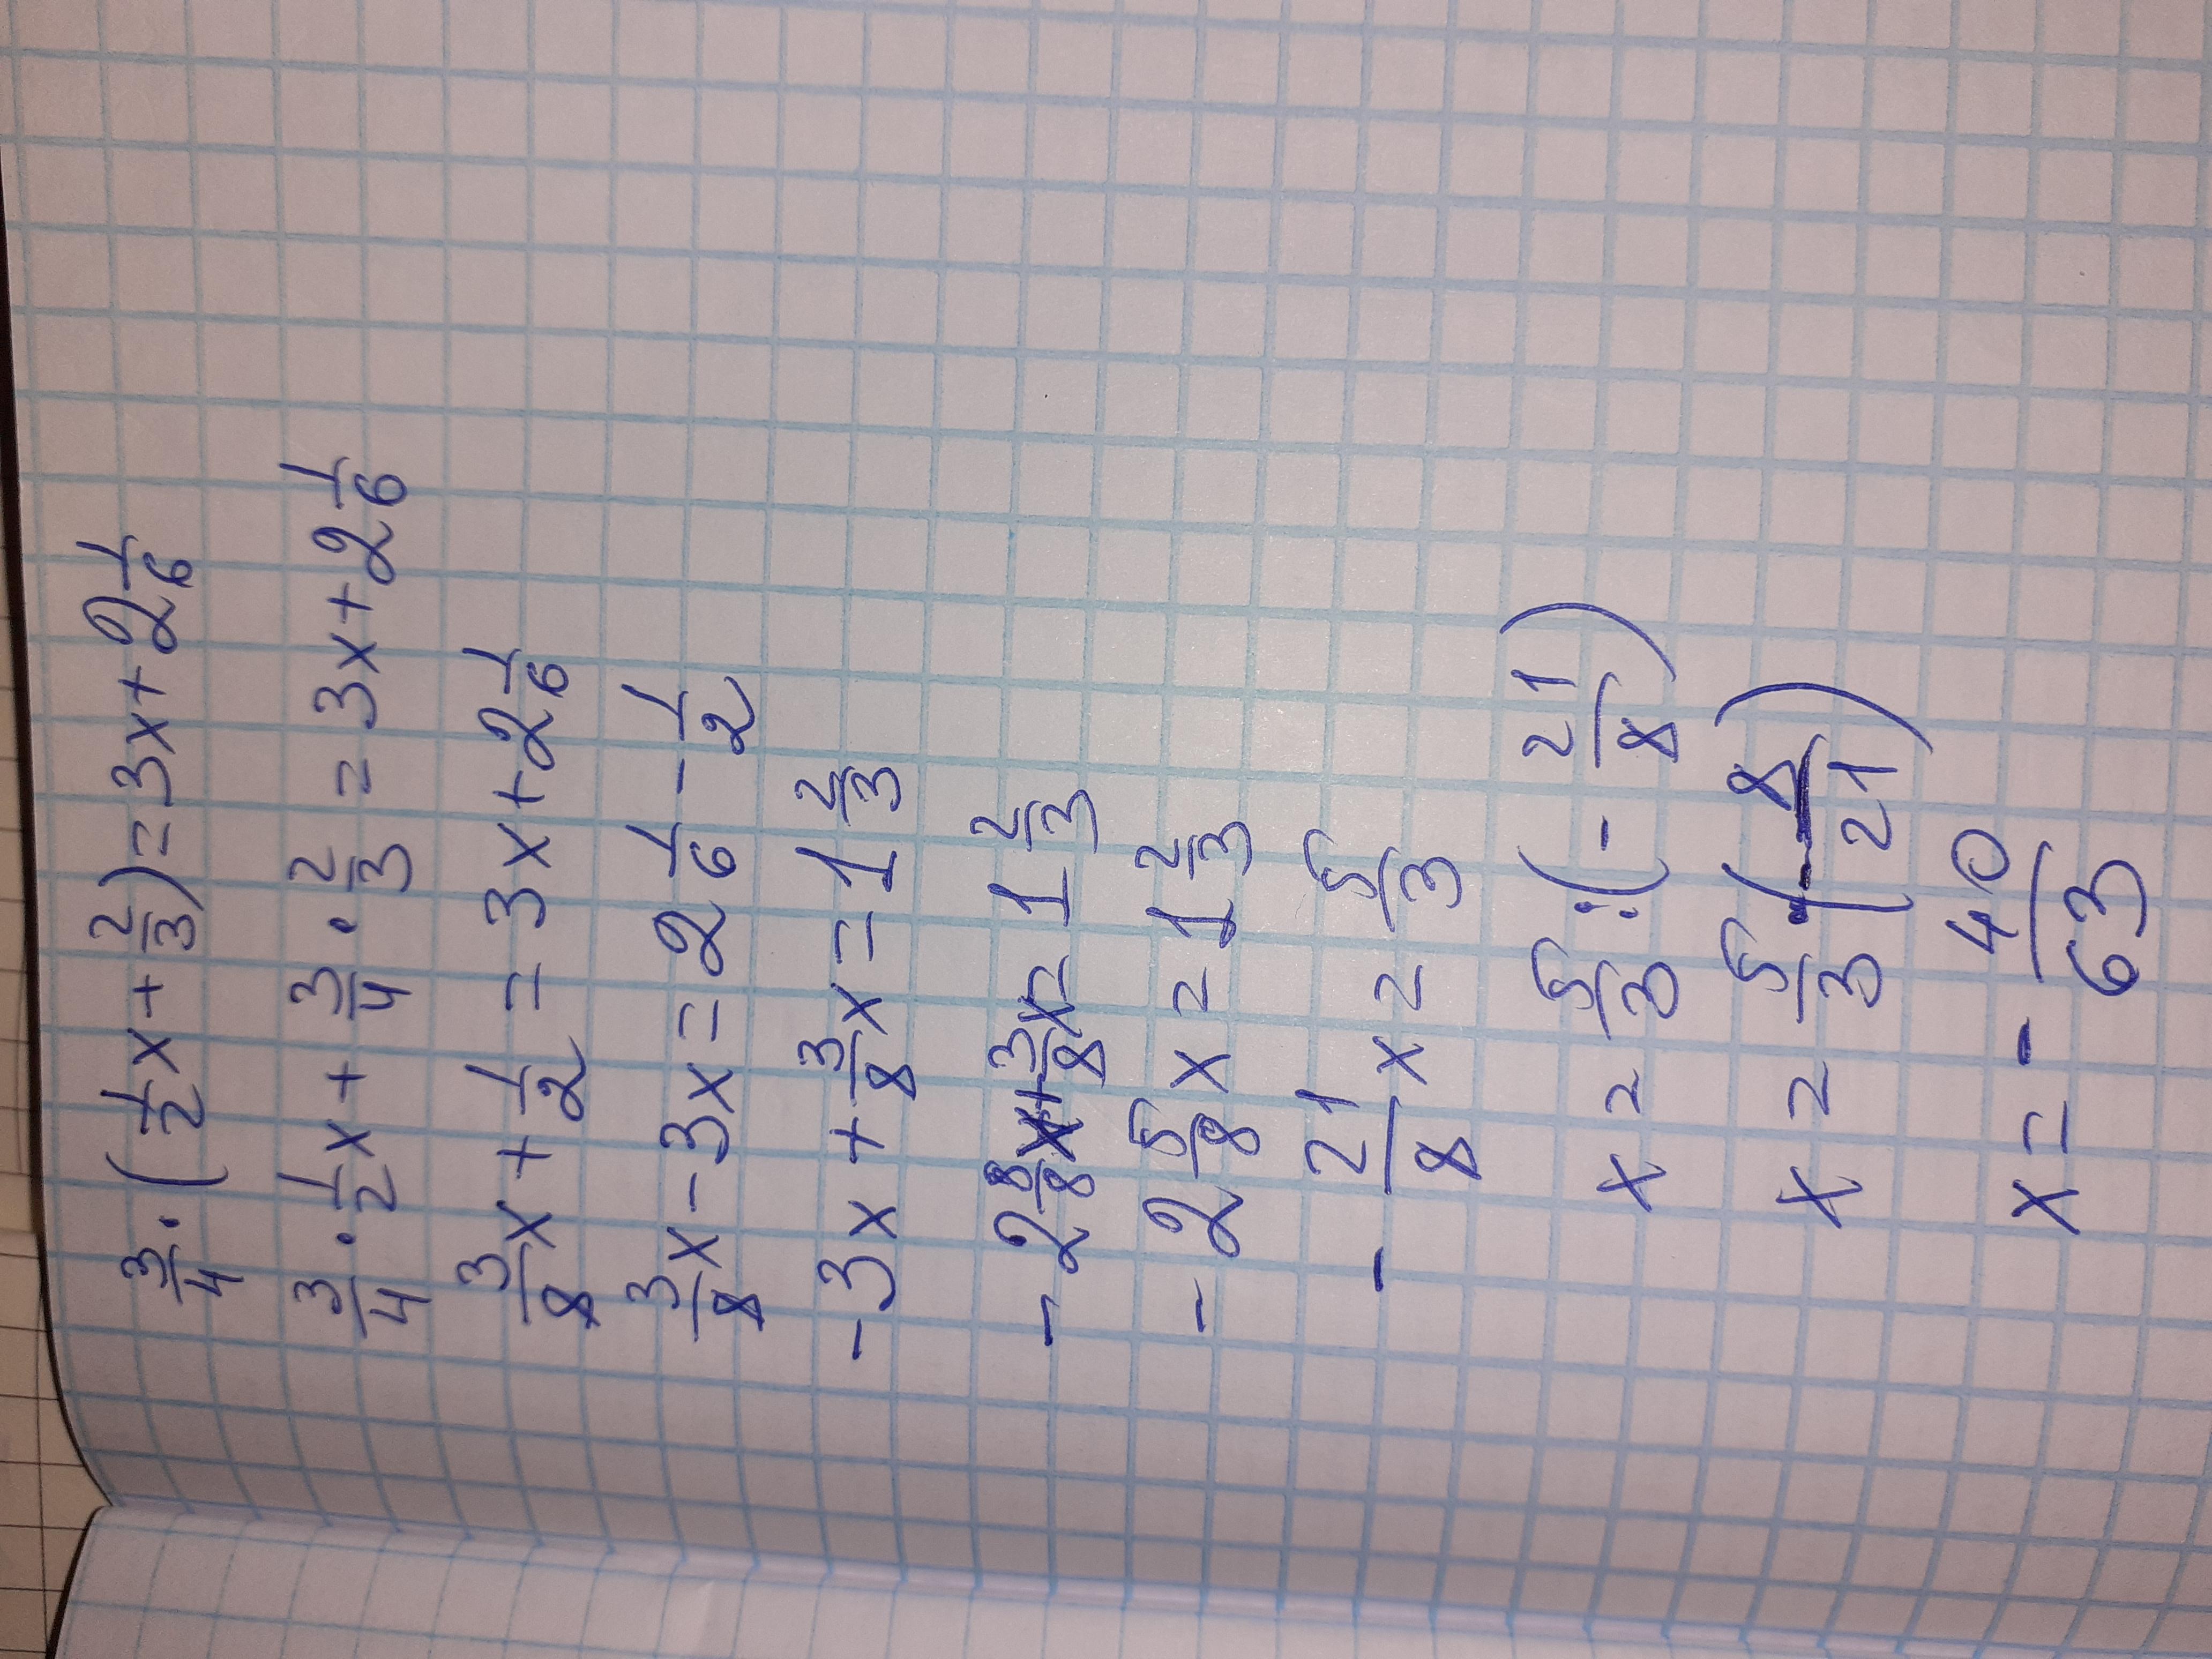 3/4 · (1/2 x + 2/3) = 3x + 2 1/6
3/4 · 1/2 x + 3/4 · 2/3 = 3x + 2 1/6
3/8 x + 1/2 = 3x + 2 1/6
3/8 x - 3x = 2 1/6 - 1/2
-3x + 3/8 x = 1 2/3
-2 8/8 x + 3/8 x = 1 2/3
-2 5/8 x = 1 2/3
- 21/8 x = 5/3
x = 5/3 : (- 21/8)
x = 5/3 · (- 8/21)
x = - 40/63